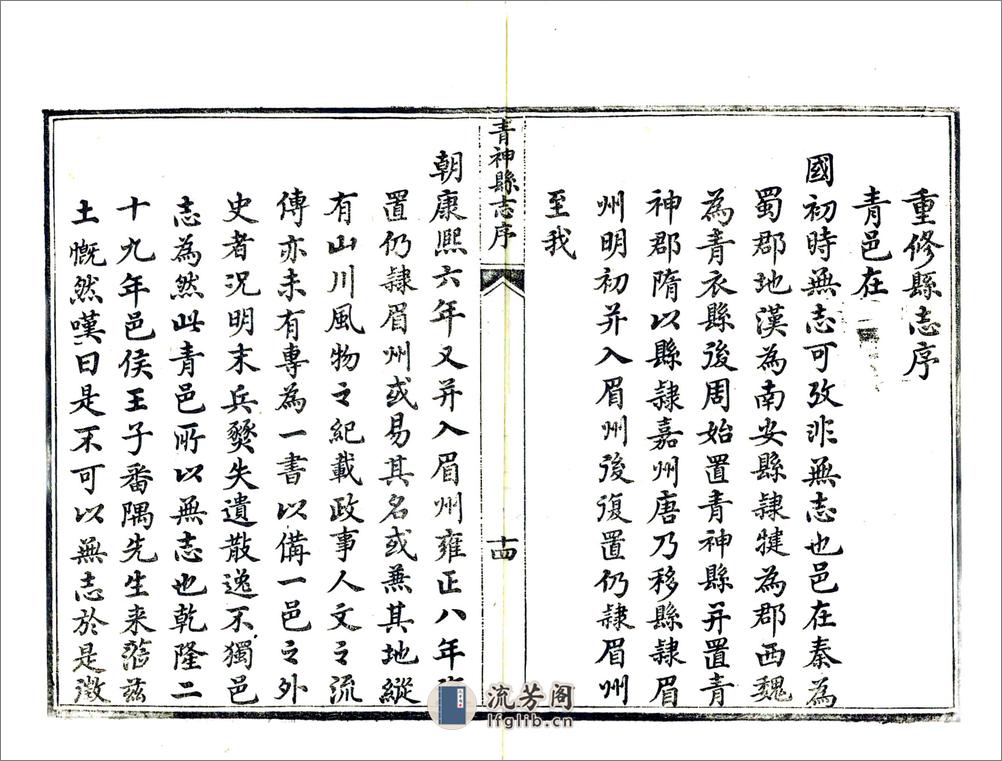 重修縣志序
青邑在
國初時無志可攷非無志也邑在秦為
蜀郡地漢為南安縣隸犍為郡西魏
為青衣縣後周始置青神縣并置青
神郡隋以縣隸嘉州唐乃移縣隸眉
州明初并入眉州後復置仍隸眉州
至我
青神縣志序
十四
朝康熙六年又并入眉州雍正八年
置仍隸眉州或易其名或蕪其地縱
有山川風物之紀載政事人文之流
傳亦未有專為一書以備一邑之外
史者況明末兵燹失遺散逸不獨邑
志為然此青邑所以無志也乾隆二
十九年邑侯王子番隅先生来蒞茲
土慨然嘆曰是不可以無志於是徵
流芳阁
lfglib.cn